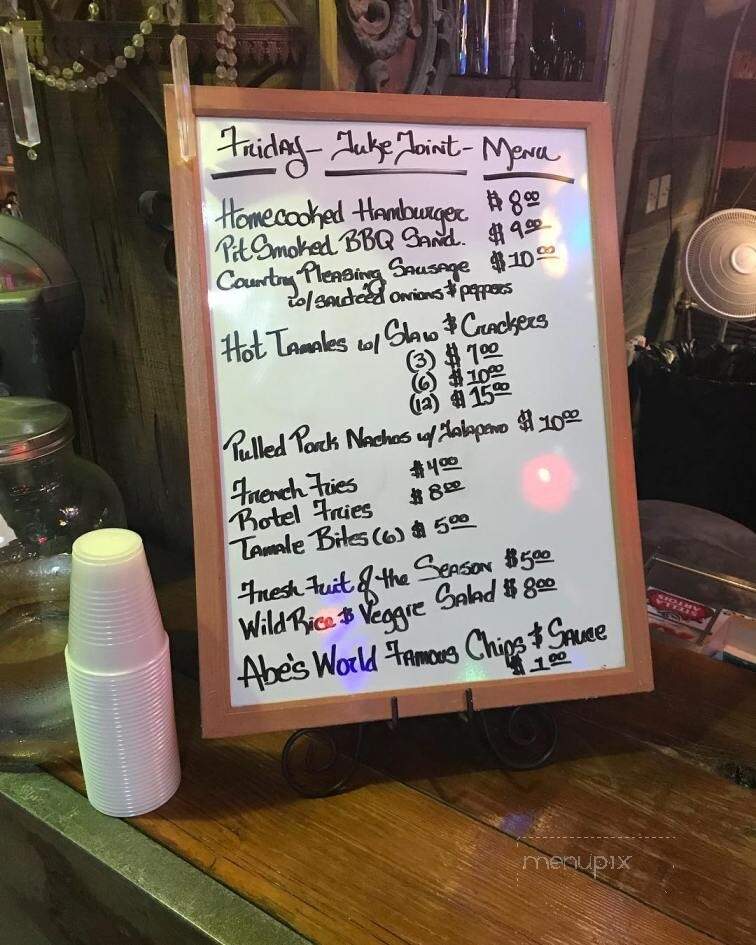 Friday - Juke Joint - Menu
Homecooked Hamburger $8.00
Pit Smoked BBQ Sand. $9.00
Country Pleasing Sausage $10.00
w/ sauteed onions & peppers
Hot Tamales w/ Slaw & Crackers
(3) $7.00
(6) $10.00
(12) $15.00
Pulled Pork Nachos w/ Jalapeno $10.00
French Fries $4.00
Rotel Fries $8.00
Tamale Bites (6) $5.00
Fresh Fuit of the Season $5.00
Wild Rice & Veggie Salad $8.00
Abe's World Famous Chips & Sauce
$1.00
STELLA
ARTOIS
menupix